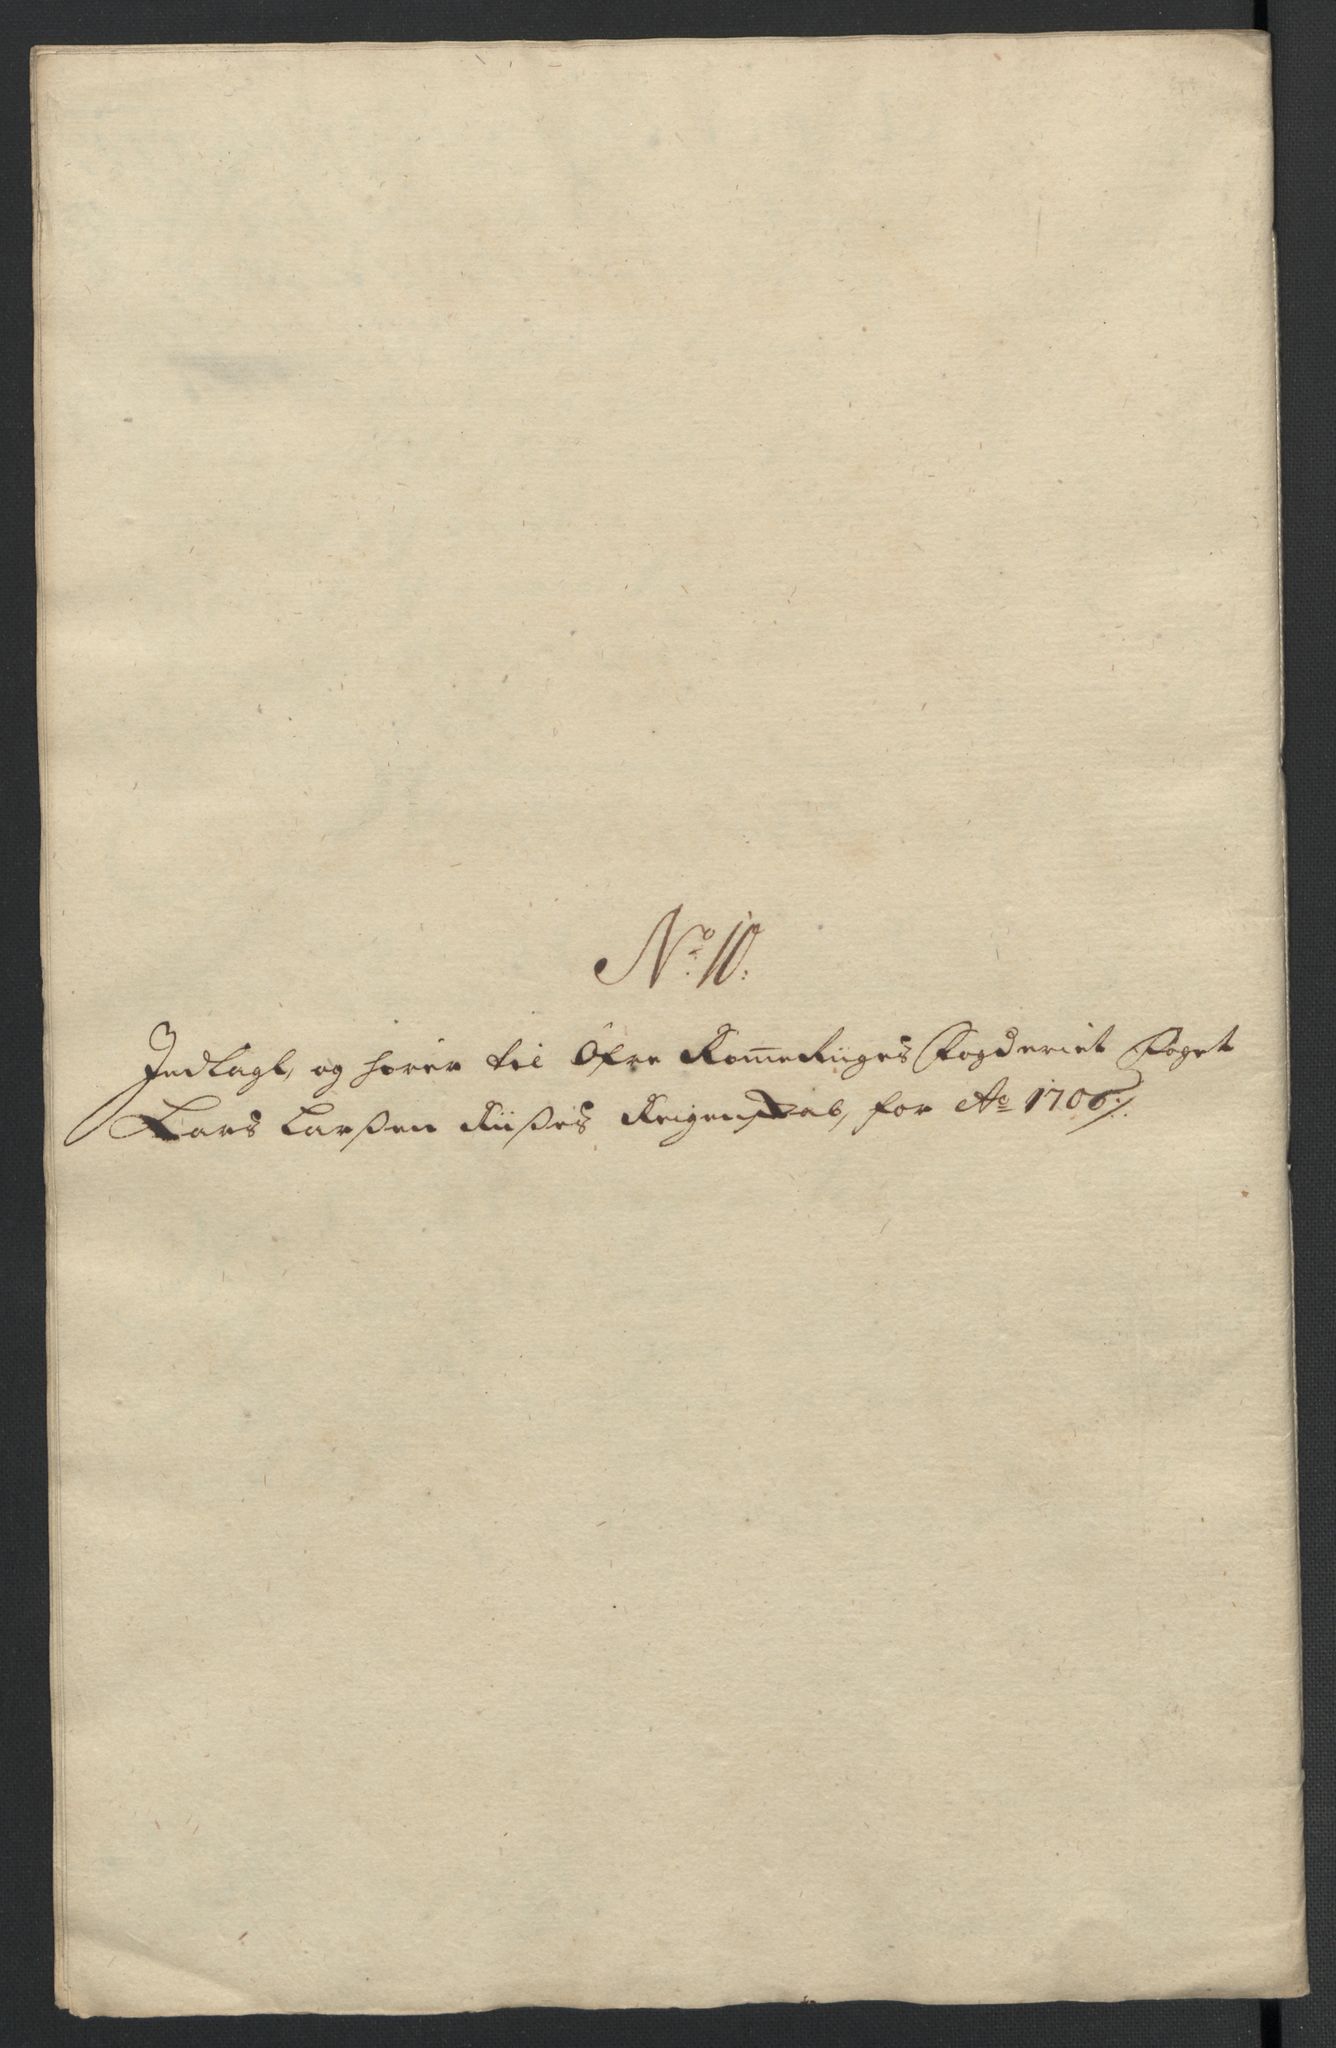 No 10.
Indlagt, og hører til Öfre Romeriiges Fogderiet Foget
Lars Larßen Riißes Reigenskab, for Ao 1706 ./.